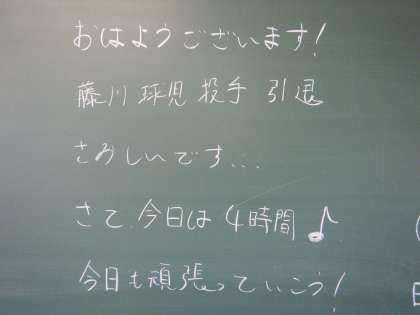 おはようございます!
藤川 球児 投手 引退
さみしいです...
さて、今日は 4時間 ♪
今日も頑張っていこう!